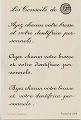 Les Conseils de
Ayez chacun votre brosse
et votre dentifrice per-
sonnels.
Ayez chacun votre brosse
et votre dentifrice per-
sonnels.
Ayez chacun votre brosse
et votre dentifrice per-
sonnels.